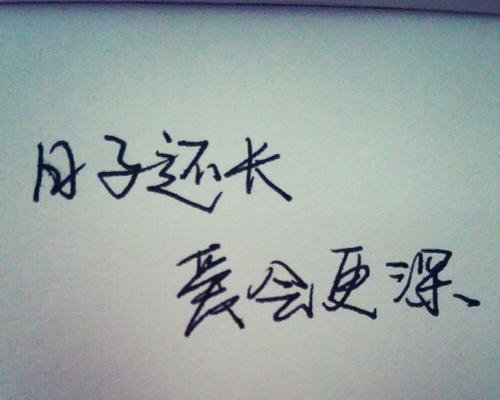 日子还长
爱会更深、